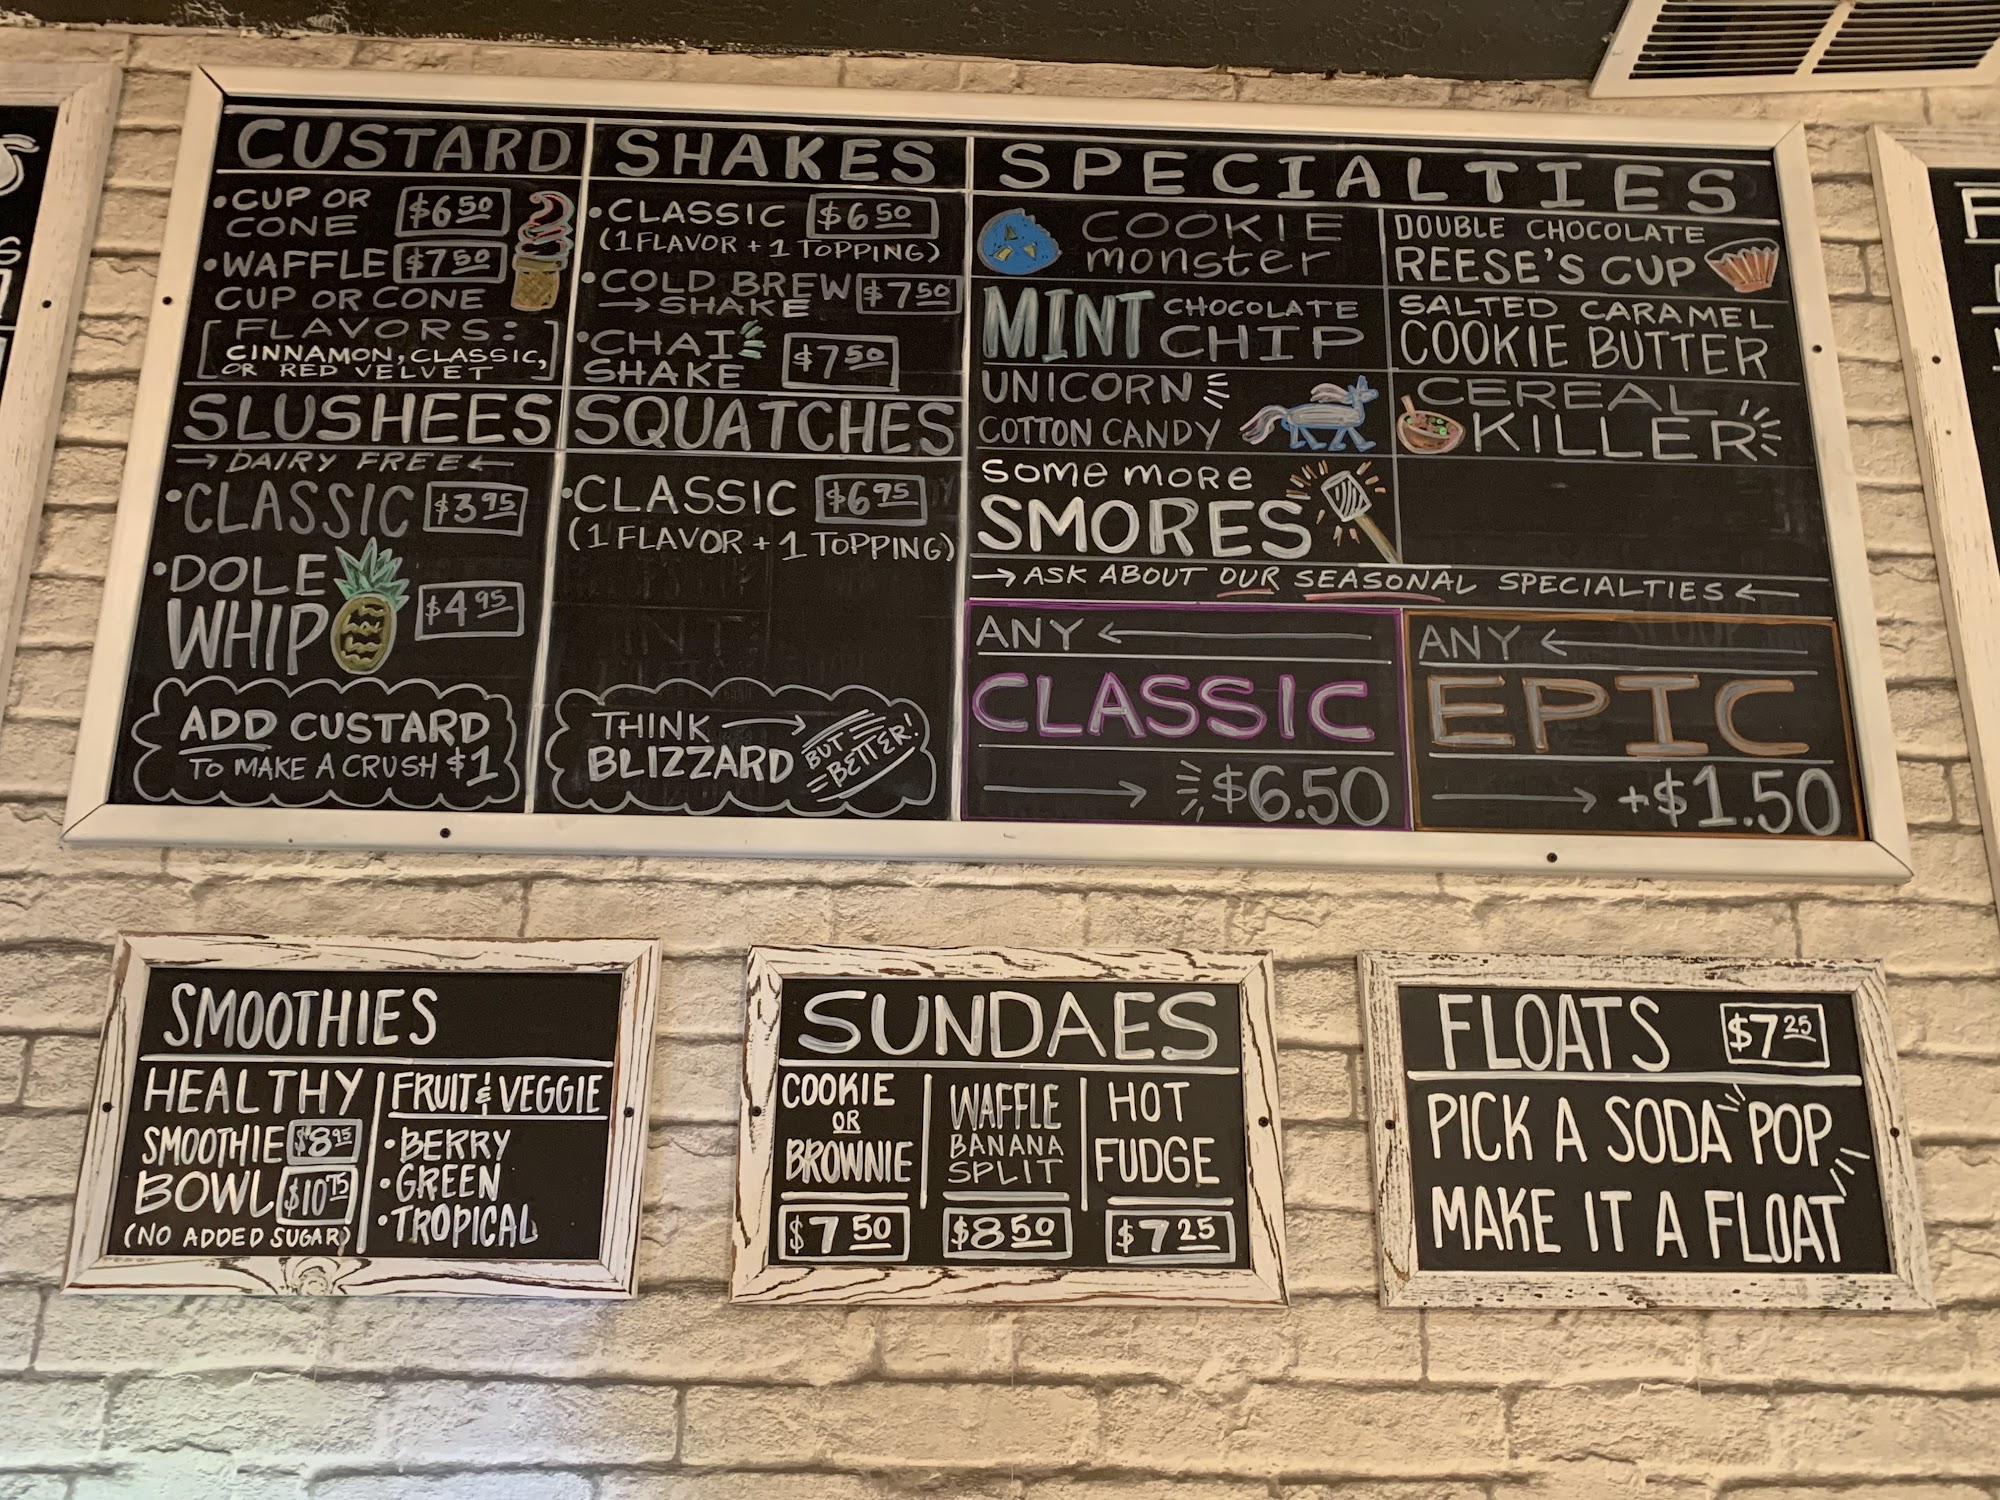 CUSTARD
• CUP OR CONE $6.50
• WAFFLE $7.50
CUP OR CONE
[FLAVORS:
CINNAMON, CLASSIC,
OR RED VELVET]
SLUSHEES
→ DAIRY FREE ←
• CLASSIC $3.95
• DOLE
WHIP $4.95
ADD CUSTARD
TO MAKE A CRUSH $1
SHAKES
• CLASSIC $6.50
(1 FLAVOR + 1 TOPPING)
• COLD BREW $7.50
→ SHAKE
• CHAI
SHAKE $7.50
SQUATCHES
• CLASSIC $6.95
(1 FLAVOR + 1 TOPPING)
THINK →
BLIZZARD
BUT
BETTER!
SPECIALTIES
COOKIE
monster
MINT CHOCOLATE
CHIP
UNICORN
COTTON CANDY
SOME MORE
SMORES
DOUBLE CHOCOLATE
REESE'S CUP
SALTED CARAMEL
COOKIE BUTTER
CEREAL
KILLER
→ ASK ABOUT OUR SEASONAL SPECIALTIES ←
ANY ←
CLASSIC
→ $6.50
ANY ←
EPIC
→ +$1.50
SMOOTHIES
HEALTHY
SMOOTHIE $8.95
BOWL $10.75
(NO ADDED SUGAR)
FRUIT & VEGGIE
• BERRY
• GREEN
• TROPICAL
SUNDAES
COOKIE
OR
BROWNIE
$7.50
WAFFLE
BANANA
SPLIT
$8.50
HOT
FUDGE
$7.25
FLOATS $7.25
PICK A SODA POP
MAKE IT A FLOAT